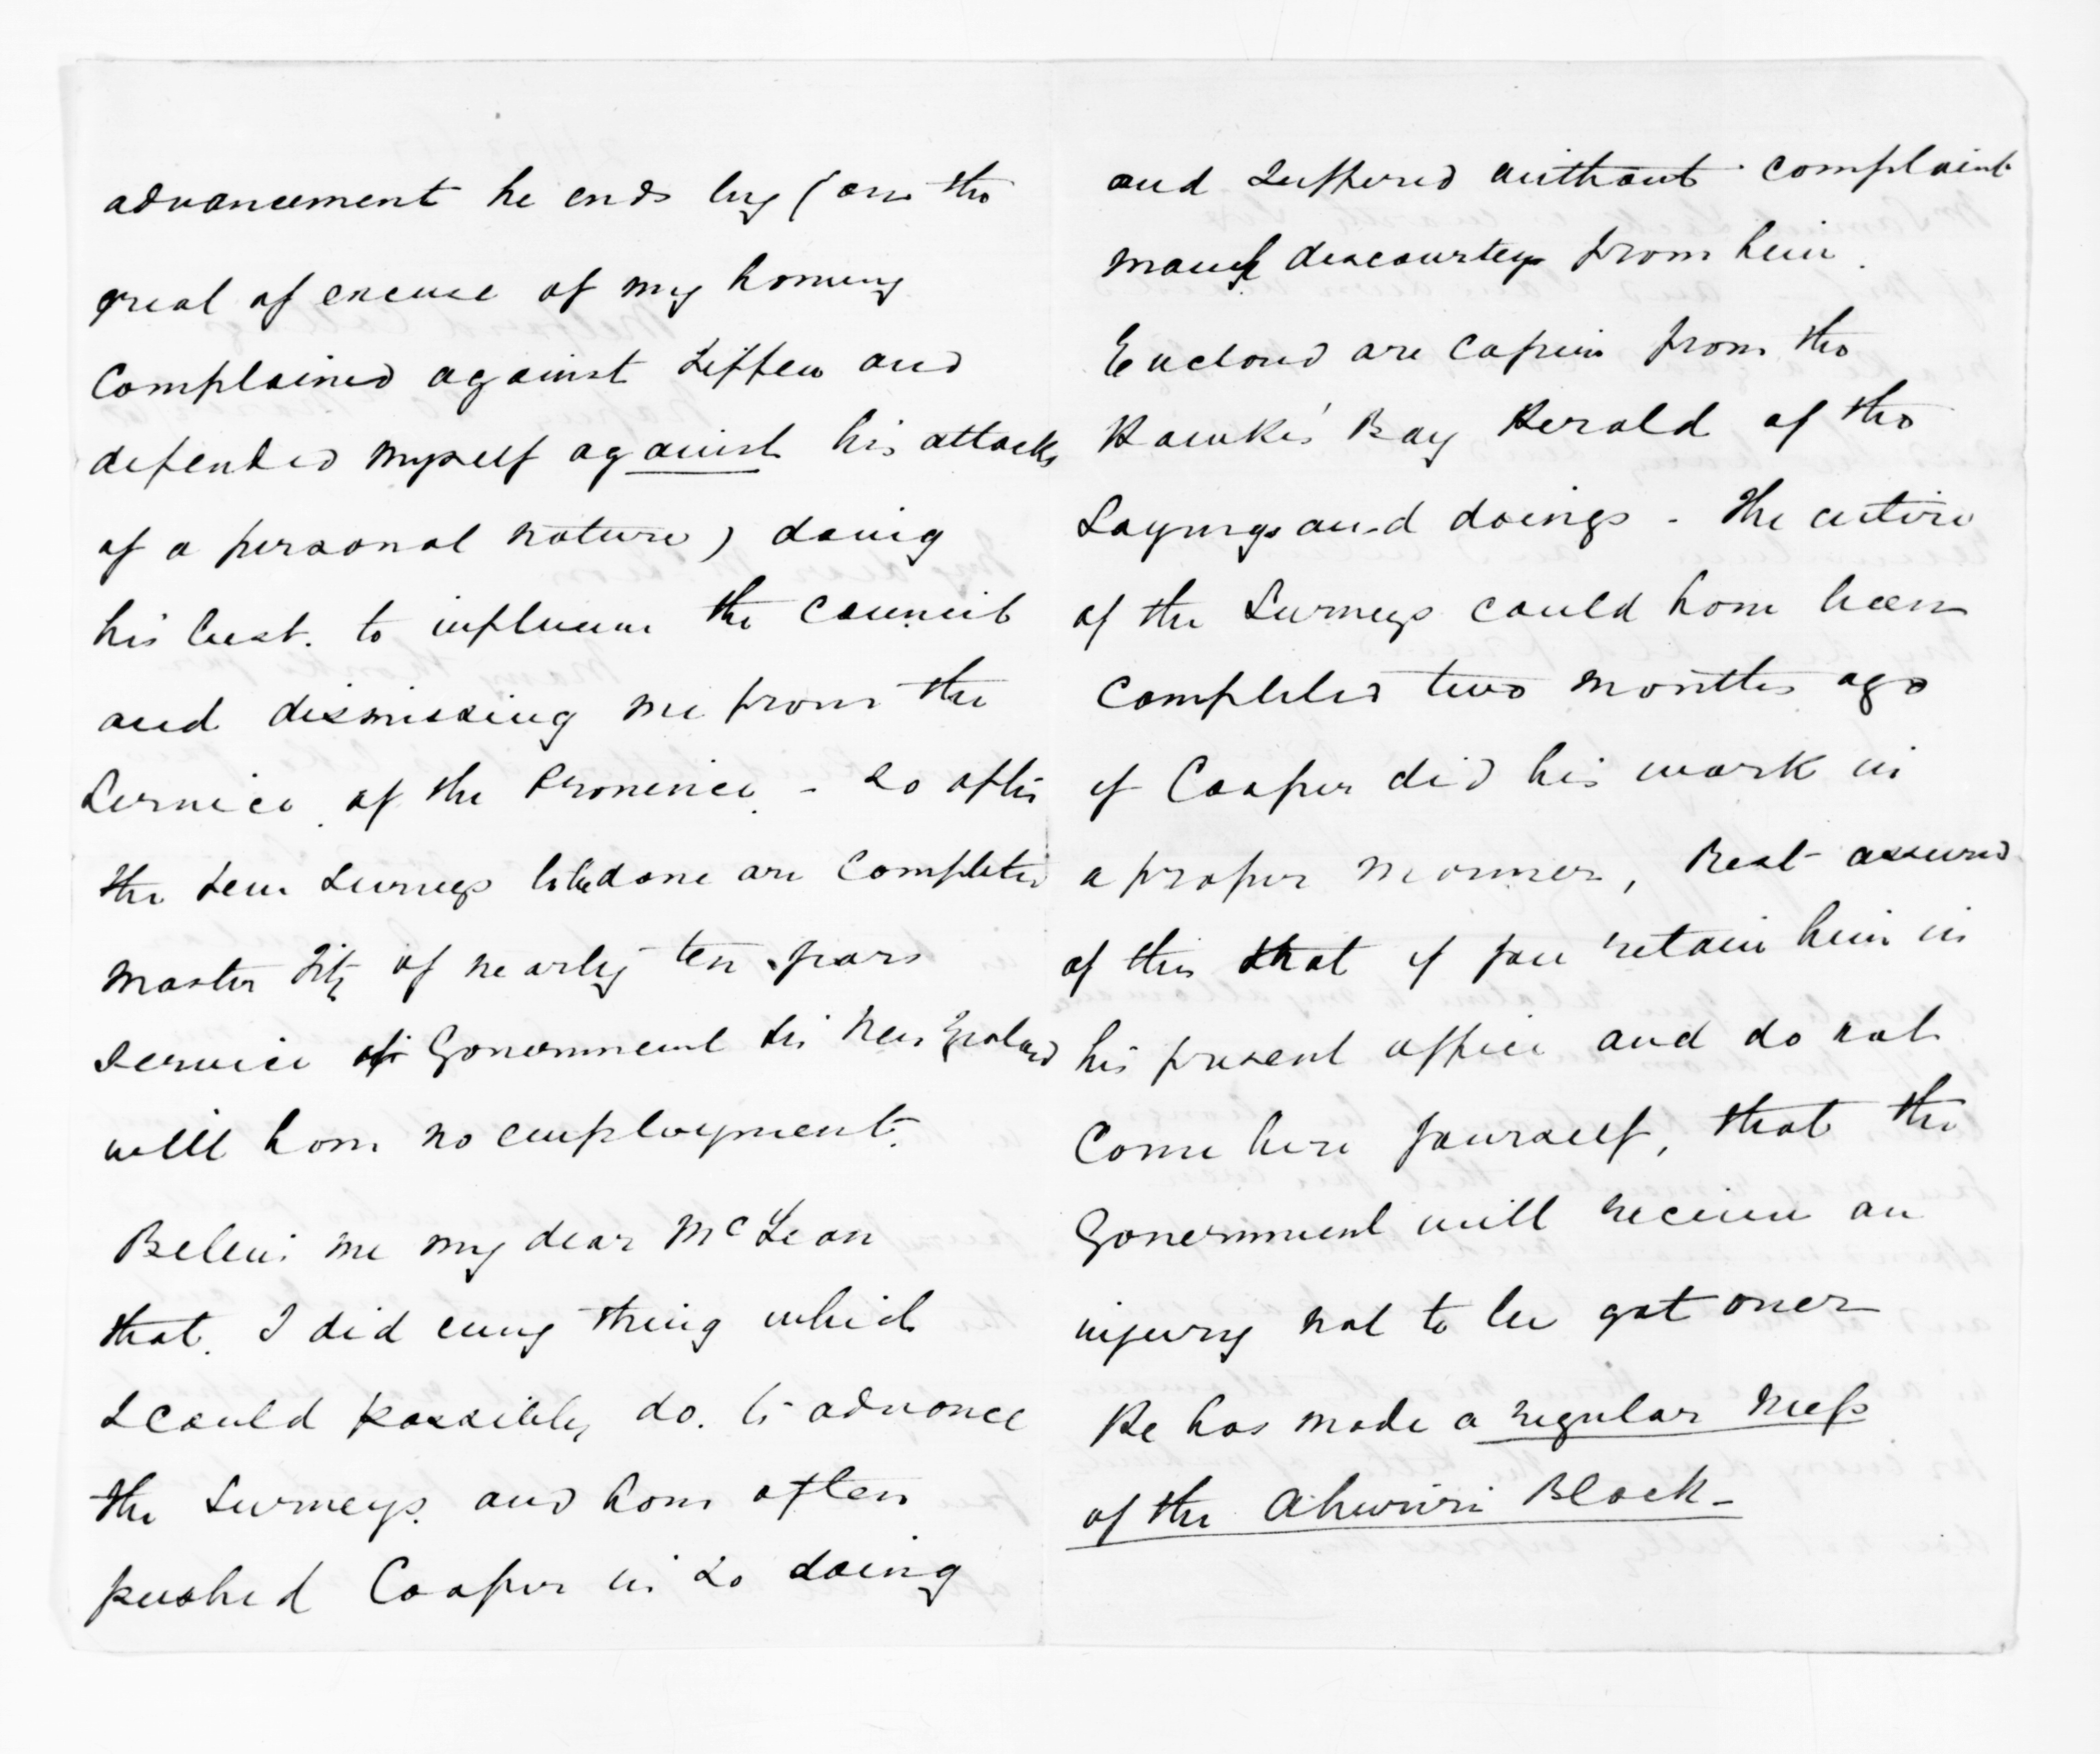 advancement he ends by (on the
great of excuse of my having
Complained against Tiffen and
defended myself against his attacks
of a personal nature) doing
his best. to influence the Council
and dismissing me from the
Service of the Province. - So after
the few Surveys to be done are Completed
Master Fitz of nearly ten years
service of Government in New Zealand
will have no employment.
Believe me my dear McLean
that. I did every thing which
I could possibly do. to advance
the Surveys. and have often
pushed Cooper in so doing
and suffered without complaint
much discourtesy from him.
Enclosed are Copies from the
Hawke's Bay Herald of the
Sayings and doings - The entire
of the Surveys could have been
Completed two months ago
if Cooper did his work in
a proper manner, Rest assured
of this that if you retain him in
his present office and do not
Come here yourself, that the
Government will receive an
injury not to be got over
He has made a regular mess
of the Ahuriri Block -